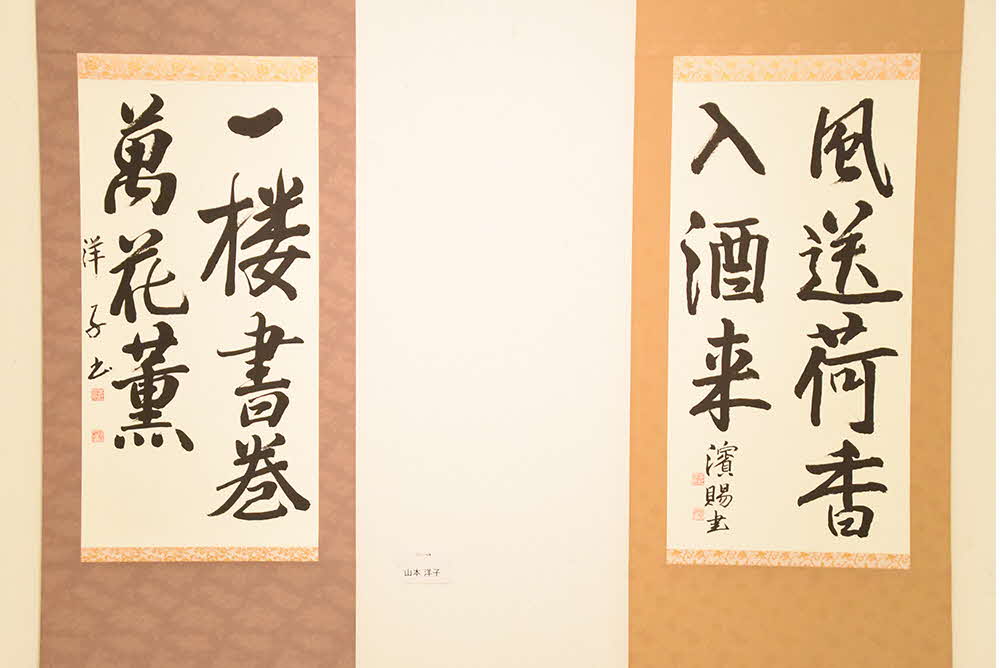 風送荷香
入酒来
濱賜書
一楼書巻
萬花薫
洋子書
山本 洋子